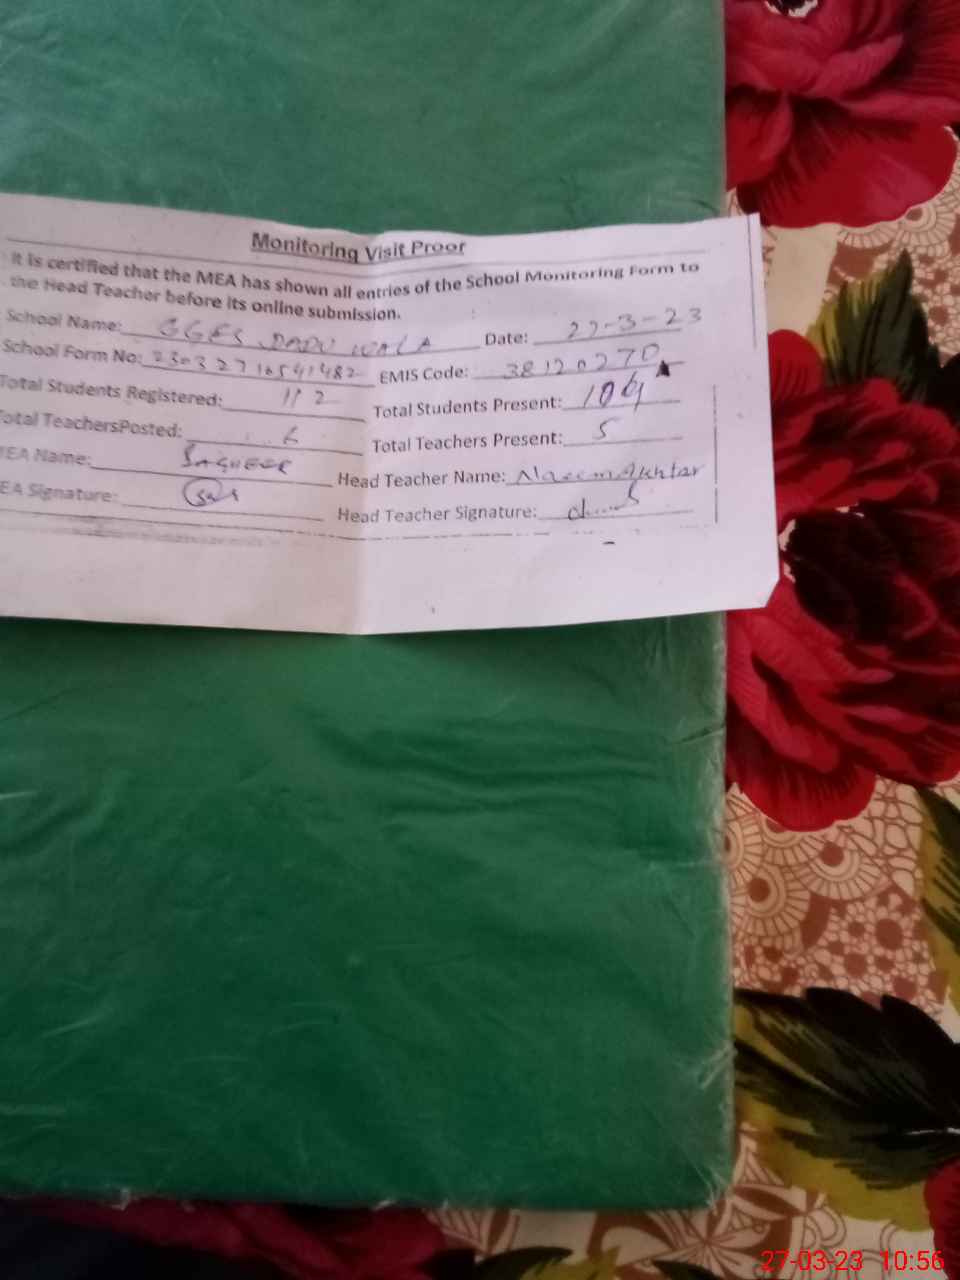 Monitoring Visit Proof
It is certified that the MEA has shown all entries of the School Monitoring Form to
the Head Teacher before its online submission.
School Name: GGES DADU WALA Date: 27-3-23
School Form No: EMIS Code: 38120270
Total Students Registered: 112 Total Students Present: 104
Total TeachersPosted: 6 Total Teachers Present: 5
MEA Name: SAGHEER Head Teacher Name: Naeem Akhtar
EA Signature: Head Teacher Signature:
27-03-23 10:56